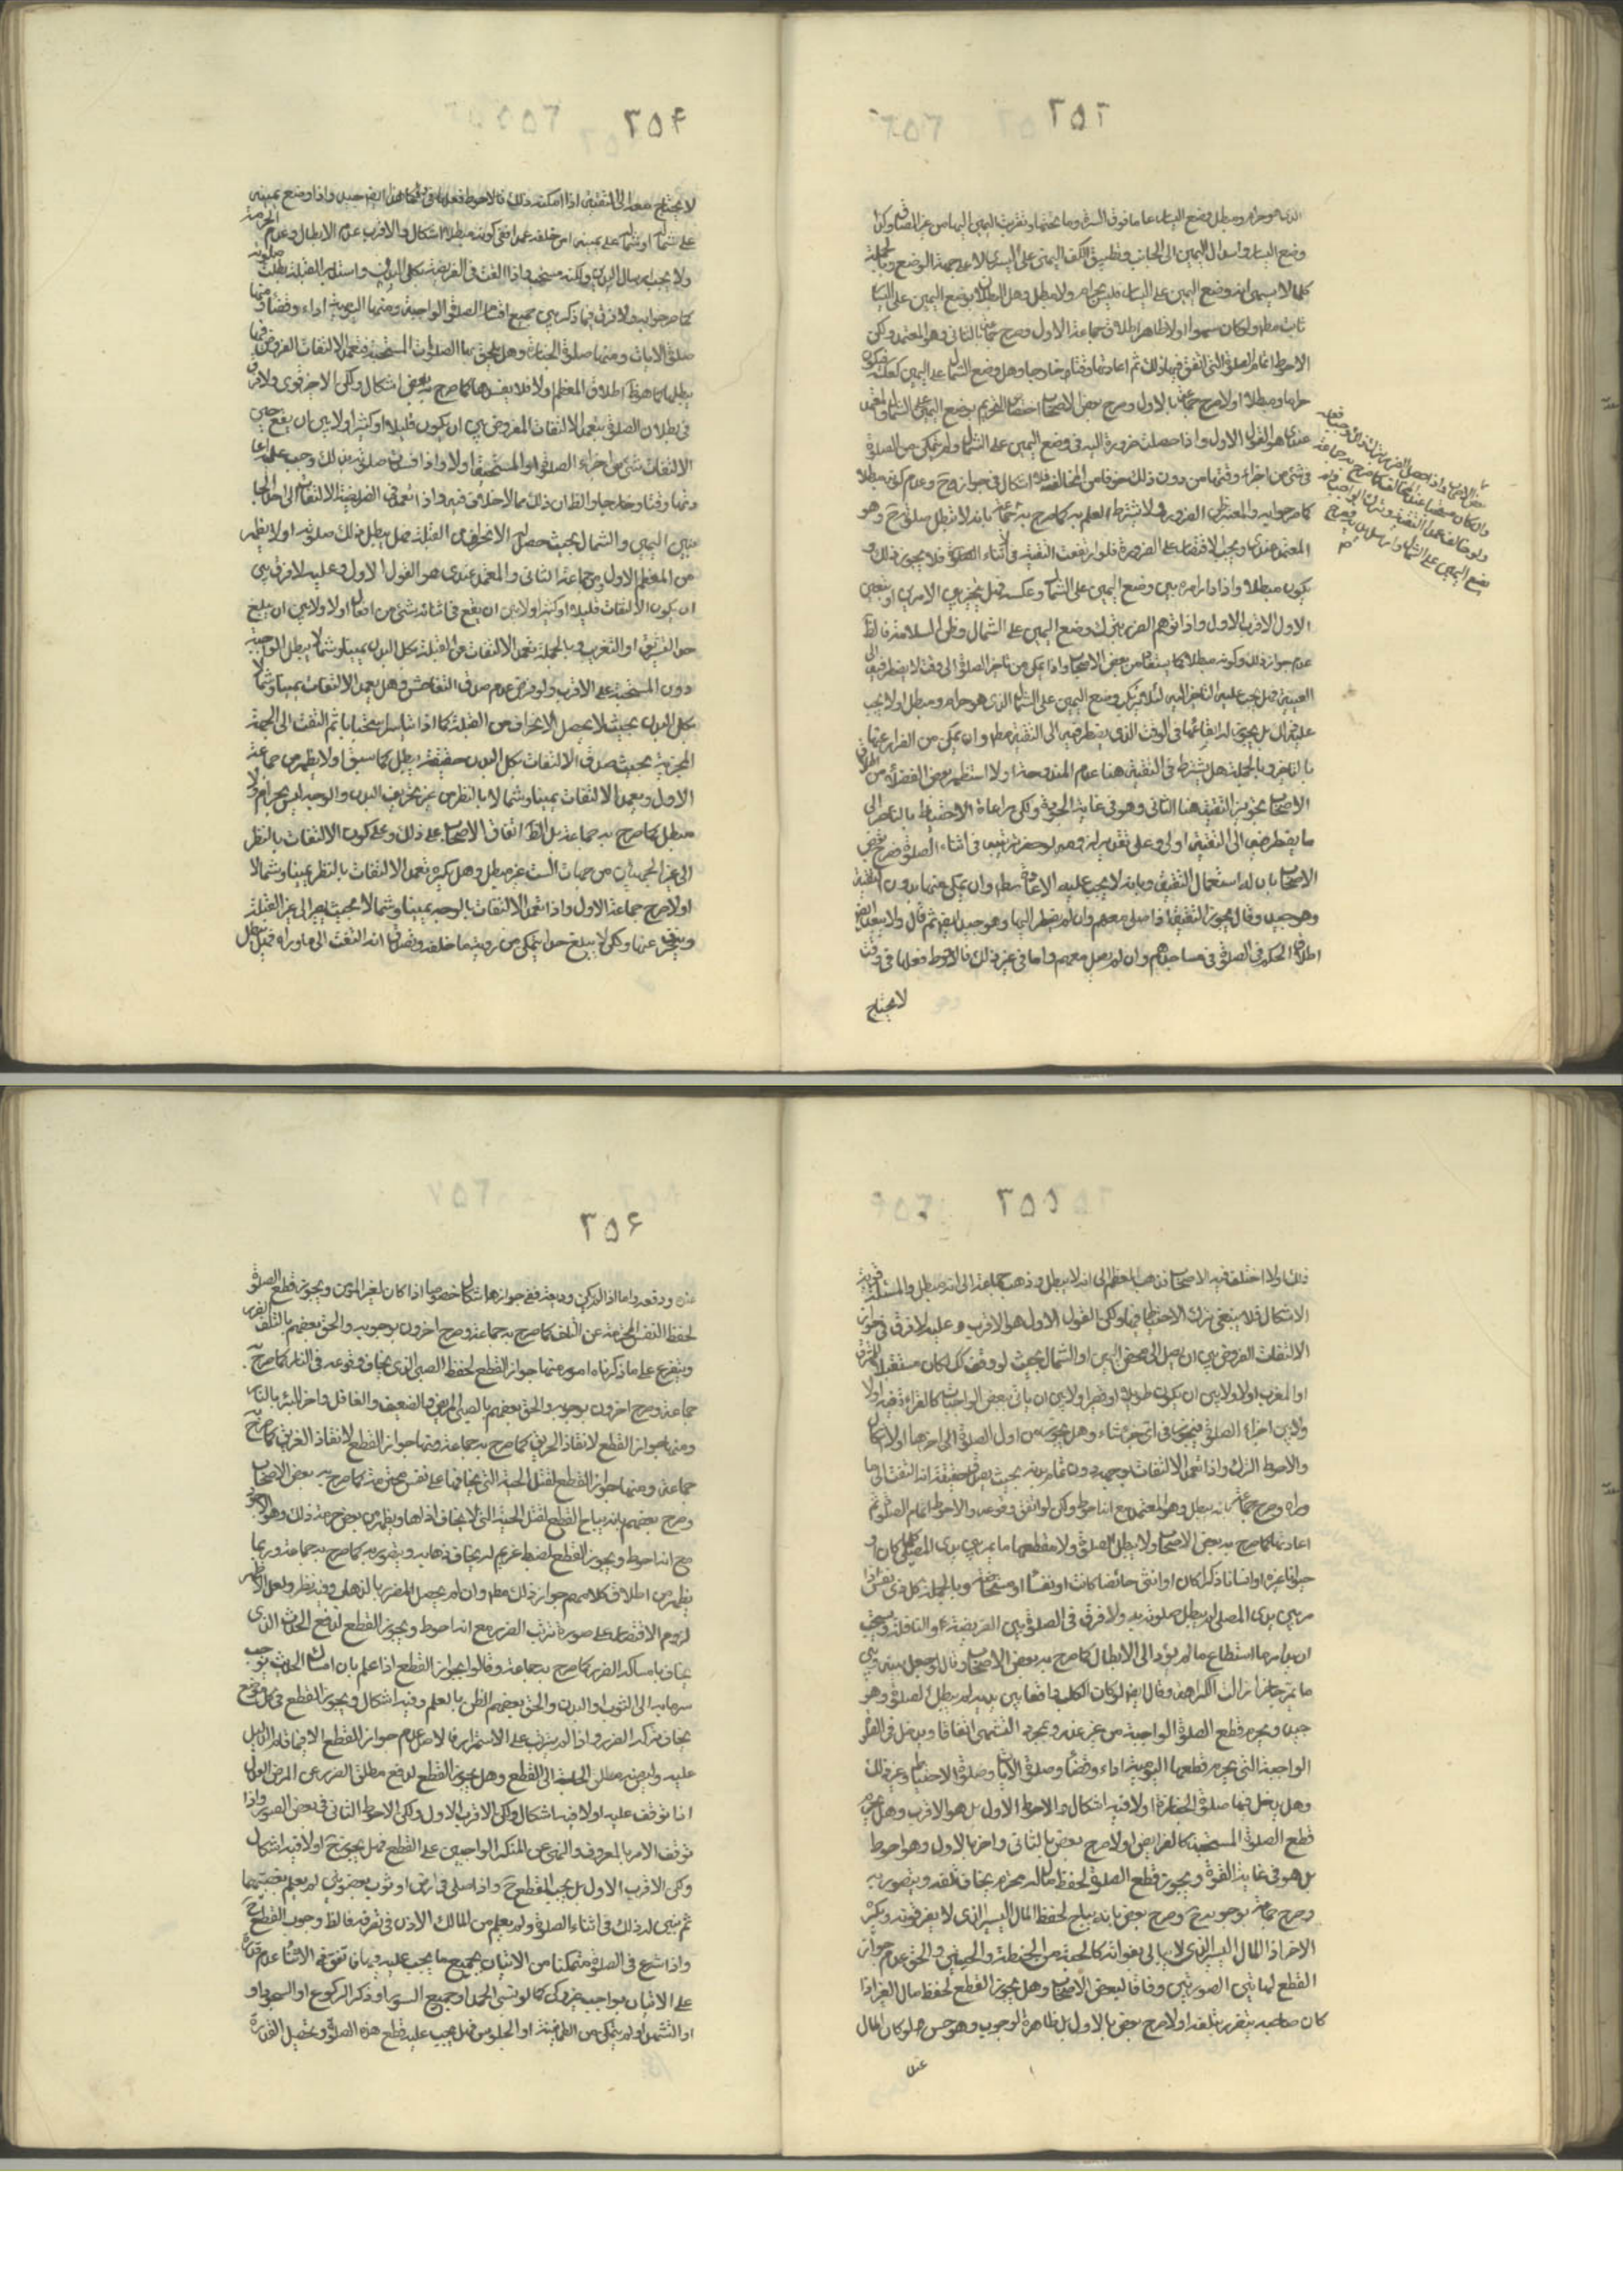 ٢٥٣
الذى هو حرام ومبطل وضع اليسار على ما فوق السرة وما تحتها وبقرب اليمين اليها من غير
وضع اليسار واسدال اليمين الى الجانب وتطبيق الكف اليمنى على اليسرى لا على جهة الوضع وبالجملة
كلما لا يسمى انه وضع اليمين على اليسار فليس بحرام ولا مبطل وهل البطلان بوضع اليمين على اليسار
ثابت مطلقا ولو كان سهوا اولا ظاهر اطلاق جماعة الاول وصرح جماعة بالثانى وهو المعتمد ولكن
الاحوط اتمام الصلوة التى اتفق فيها ذلك ثم اعادتها وقتا وخارجا وهل وضع الشمال على اليمين كعكسه فيكون
حراما ومبطلا اولا صرح جماعة بالاول وصرح بعض الاصحاب باختصاص التحريم بوضع اليمين على الشمال والمعتمد
عندى هو القول الاول واذا حصلت ضرورة اليه فى وضع اليمين على الشمال ولم يتمكن من الصلوة
فى شىء من اجزاء وقتها من دون ذلك خوفا من المخالف فلا اشكال فى جوازه ح وعدم كونه مبطلا
كما صرحوا به والمعتبر ظن الضرورة فلا يشترط العلم به كما صرح به جماعة بانه لا تبطل صلوته ح وهو
المعتمد عندى ويجب الاقتصار على الضرورة فلو ارتفعت التقية فى اثناء الصلوة فلا يجوز ذلك و
يكون مبطلا واذا دار امره بين وضع اليمين على الشمال وعكسه فهل يتخير بين الامرين او يتعين
الاول الاقرب الاول واذا توهم الضرر بترك وضع اليمين على الشمال وظن السلامة فالظ
عدم جواز ذلك وكونه مبطلا كما يستفاد من بعض الاصحاب واذا تمكن من تاخير الصلوة الى وقت لا يضطر فيه الى
التقية فهل يجب عليه التاخير اليه لئلا يرتكب وضع اليمين على الشمال الذى هو حرام ومبطل اولا يجب
عليه ذلك بل يجوز له ايقاعها فى الوقت الذى يضطر فيه الى التقية مطلقا وان تمكن من الفرار عنها
بالتاخير وبالجملة هل يشترط فى التقية هنا عدم المندوحة اولا استظهر بعض الفضلاء من اطلاق
الاصحاب تجويز التقية هنا الثانى وهو فى غاية الجودة ولكن مراعاة الاحتياط بالتاخير الى
ما يضطر فيه الى التقية اولى وعلى تقدير
الاصحاب بان له استعمال التقية وبانه لا يجب عليه الاعادة مطلقا وان تمكن منها بدون التقية
وهو جيد وقال يجوز التقية اذا صلى معهم وان لم يضطر اليها وهو جيد ايضا ثم قال ولا يبعد
اطلاق الحكم فى الصلوة فى مساجدهم وان لم يصل معهم واما فى غير ذلك فالاحوط فعلها فى وقت
لا يحتاج
٢٥۴
لا يحتاج معه الى التقية اذا امكنه ذلك فالاحوط واذا وضع يمينه
على شماله او شماله على يمينه من خلفه عمدا ففى كونه مبطلا اشكال والاقرب عدم الابطال وعدم الحرمة
ولا يجب ارسال اليدين ولكنه مستحب واذا التفت فى الفريضة بكل البدن واستدبر القبلة بطلت صلوته
كما صرحوا به ولا فرق فيما ذكر بين جميع اقسام الصلوة الواجبة ومنها اليومية اداء وقضاء ومنها
صلوة الايات ومنها صلوة الجنازة وهل يلحق بها الصلوات المستحبة فتعمد الالتفات المفروض فيها
يبطلها كما هو ظ اطلاق المعظم اولا فلا يفسدها كما صرح به بعض اشكال ولكن الاخير قوى ولا فرق
فى بطلان الصلوة بتعمد الالتفات المفروض بين ان يكون قليلا او كثيرا ولا بين ان يقع حين
الالتفات شىء من اجزاء الصلوة او المستحبة فيها اولا واذا فسدت صلوته بذلك وجب عليه اعا
دتها وقتا وخارجا والظ ان ذلك مما لا خلاف فيه واذا تعمد فى الفريضة الالتفات الى احد الجا
نبين اليمين والشمال بحيث حصل له الانحراف عن القبلة فهل يبطل بذلك صلوته اولا يظهر
من المعظم الاول ومن جماعة الثانى والمعتمد عندى هو القول الاول وعليه لا فرق بين
ان يكون الالتفات قليلا او كثيرا ولا بين ان يقع فى اثنائه شىء من افعال اولا ولا بين ان يبلغ
حد التشريق او التغريب وبالجملة تعمد الالتفات عن القبلة بكل البدن يمينا وشمالا يبطل الواجبة
دون المستحبة على الاقرب ولو فرض عدم صدق التفاحش وهل تعمد الالتفات يمينا وشمالا
بكل البدن بحيث لا يحصل الانحراف من القبلة كما اذا تياسر استحبابا ثم التفت الى الجهة
المجزية بحيث صدق الالتفات بكل البدن حقيقة يبطل كما سبق اولا يظهر من جماعة
الاول وتعمد الالتفات يمينا وشمالا بالنظر من غير تحريف البدن والوجه ليس بحرام ولا
مبطل كما صرح به جماعة بل الظ اتفاق الاصحاب على ذلك وعلى كون الالتفات بالنظر
الى غير الجهتين من جهات الست غير مبطل وهل يكره تعمد الالتفات بالنظر يمينا وشمالا
اولا صرح جماعة الاول واذا تعمد الالتفات بالوجه يمينا وشمالا بحيث يصير الى غير القبلة
وينحرف عنها ولكن لا يبلغ حدا يتمكن من رؤية ما خلفه ويصدق انه التفت الى ما وراه فهل تبطل
٢٥٥
ذلك اولا اختلف فيه الاصحاب فذهب المعظم الى انه لا يبطل وذهب جماعة الى انه مبطل والمسئلة قوية
الاشكال فلا ينبغى ترك الاحتياط فيها ولكن القول الاول هو الاقرب وعليه لا فرق فى جواز
الالتفات المفروض بين ان يصل الى محض اليمين او الشمال بحيث لو وقف كك لكان مستقبلا للمشرق
او المغرب اولا ولا بين ان يكون طويلا او قصيرا ولا بين ان ياتى بعض الواجبات كالقراءة فيه اولا
ولا بين اجزاء الصلوة فيجوز فى اى جزء شاء وهل يجوز من اول الصلوة الى اخرها اولا اشكال
والاحوط الترك واذا تعمد الالتفات بوجهه دون تمام بدنه بحيث يصدق حقيقة انه التفت الى ما
وراه وصرح جماعة بانه يبطل وهو المعتمد مع انه احوط ولكن لو اتفق وقوعه فالاحوط اتمام الصلوة ثم
اعادتها كما صرح به بعض الاصحاب ولا يبطل الصلوة ولا يقطعها ما يمر بين يدى المصلى كلبا كان او
حيوانا غيره او انسانا ذكرا كان او انثى حائضا كانت او نفساء او مستحاضة وبالجملة كل ذى نفس اذا
مر بين يدى المصلى لم يبطل صلوته به ولا فرق فى الصلوة بين الفريضة والنافلة ويستحب
ان يدرا مرها استطاع ما لم يؤد الى الابطال كما صرح به بعض الاصحاب وقال لو جعل بينه وبين
ما يمر حاجزا زالت الكراهة وقال ايضا لو كان الكلب واقفا بين يديه لم يبطل الصلوة وهو
جيد ويحرم قطع الصلوة الواجبة من غير عذر وبمجرد التشهى اتفاقا ويدخل فى
الواجبة التى يحرم قطعها اليومية اداء وقضاء وصلوة الايات وصلوة الاحتياط وغير ذلك
وهل يدخل فيها صلوة الجنازة اولا فيه اشكال والاحوط الاول بل هو الاقرب وهل يحرم
قطع الصلوة المستحبة كالفرايض اولا صرح بعض بالثانى واخر بالاول وهو احوط
بل هو فى غاية القوة ويجوز قطع الصلوة لحفظ مال له محترم يخاف تلفه ويتضرر به
وصرح جماعة بوجوبه ح وصرح بعض بانه يباح لحفظ المال اليسير الذى لا يضر فوته ويكره
الاخر اذا المال اليسير الذى لا يبالى بفواته كالحبة من الحنطة والحبتين والحق عدم جواز
القطع لهما بين الصورتين وفاقا لبعض الاصحاب وهل يجوز القطع لحفظ مال الغير اذا
كان صاحبه يتضرر بتلفه اولا صرح بعض بالاول بل ظاهره الوجوب وهو حسن ولو كان المال
عند
٢٥۶
عنده ودفعه واما اذا لم يكن وديعة ففى جوازها اشكال خصوصا اذا كان لغير المؤمن ويجوز قطع الصلوة
لحفظ النفس المحترمة عن التلف كما صرح به جماعة وصرح اخرون بوجوبه والحق بعضهم بالتلف الضرر
ويتفرع على ما ذكرناه امور منها جواز القطع لحفظ الصبى الذى يخاف وقوعه فى النار كما صرح به
جماعة وصرح اخرون بوجوبه والحق بعضهم بالصبى المريض والضعيف والغافل واخر البئر بالنار
ومنها جواز القطع لانقاذ الحريق كما صرح به جماعة ومنها جواز القطع لانقاذ الغريق كما صرح به
جماعة ومنها جواز القطع لقتل الحية التى يخافها على نفس محترمة كما صرح به بعض الاصحاب
وصرح بعضهم بانه يباح القطع لقتل الحية التى لا يخاف اذاها ويظهر من بعض حرمة ذلك وهو الاجود
مع انه احوط ويجوز القطع لضبط غريم له يخاف ذهابه ويتضرر به كما صرح به جماعة وربما
يظهر من اطلاق كلامهم جواز ذلك مطلقا وان لم يحصل الضرر بالذهاب وفيه نظر ولعل الاظهر
لزوم الاقتصار على صورة ترتب الضرر مع انه احوط ويجوز القطع لدفع الحدث الذى
يخاف بامساكه الضرر كما صرح به جماعة وقالوا بجواز القطع اذا علم بان امساك الحدث يوجب
سرمايه الى الثوب او البدن والحق بعضهم الظن بالعلم وفيه اشكال ويجوز القطع فى كل موضع
يخاف بتركه الضرر واذا لم يترتب على الاستمرار فالاصل عدم جواز القطع الا فيما قام الدليل
عليه وهل يجوز القطع لدفع مطلق الضرر عن المؤمن
اذا توقف عليه اولا فيه اشكال ولكن الاقرب الاول ولكن الاحوط الثانى فى بعض الصور واذا
توقف الامر بالمعروف والنهى عن المنكر الواجبين على القطع فهل يجوز ح اولا فيه اشكال
ولكن الاقرب الاول بل يجب القطع ح واذا صلى فى ارض او ثوب مغصوبين لم يعلم بغصبيتهما
ثم تبين له ذلك فى اثناء الصلوة ولم يعلم من المالك الاذن فى تصرفه فالظ وجوب القطع ح
واذا شرع فى الصلوة متمكنا من الاتيان بجميع ما يجب عليه فيها فاتفق فى الاثناء عدم قدرته
على الاتيان بواجب غير ركن كما لو نسى الحمد او جميع السور او ذكر الركوع او السجود او
او التشهد او لم يتمكن من الطمانينة او الجلوس فهل يجب عليه قطع هذه الصلوة وتحصيل القدرة